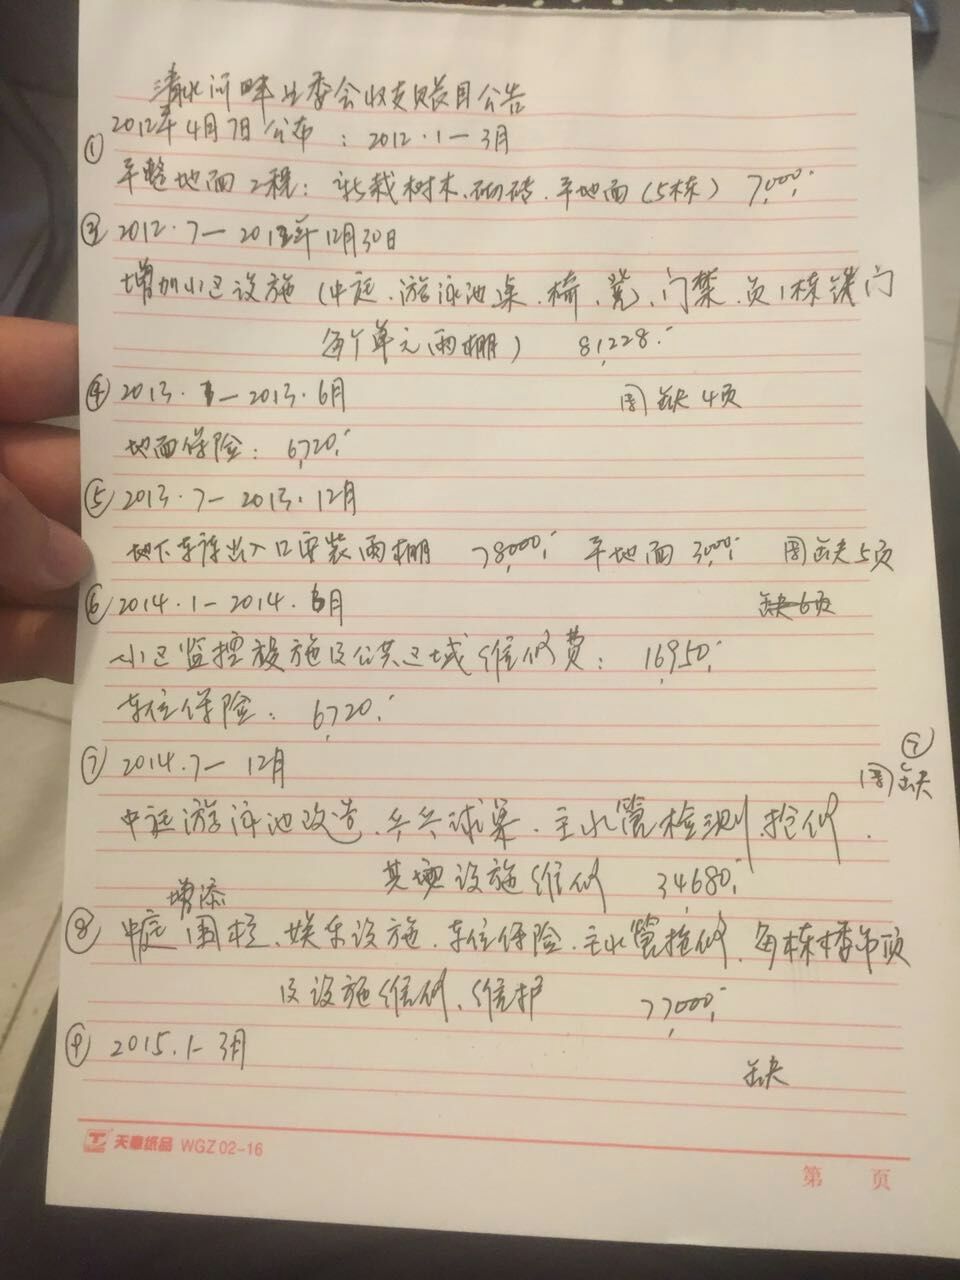 清水河畔业委会收支账目公告
① 2012年4月7日公布：2012.1—3月
平整地面工程：新栽树木、砌砖、平地面（5栋） 7,000.-
③ 2012.7—2012年12月30日
增加小区设施（中庭、游泳池桌、椅、凳）、门禁、负1栋铁门
每个单元雨棚） 81,228.-
④ 2013.1—2013.6月 图缺4页
地面保险：6,720.-
⑤ 2013.7—2013.12月
地下车库出入口安装雨棚 78,000.- 平地面 3,000.- 图缺5页
⑥ 2014.1—2014.6月 缺6页
小区监控设施及公共区域维修费：16,950.-
车位保险：6,720.-
⑦
⑦ 2014.7—12月 图缺
中庭游泳池改造、乒乓球桌、主水管检测抢修、
其它设施维修 34,680.-
增添
⑧ 中庭围栏、娱乐设施、车位保险、主水管抢修、每栋楼吊顶
及设施维修、维护 77,000.-
⑨ 2015.1—3月
缺
天章纸品 WGZ 02-16
第 页